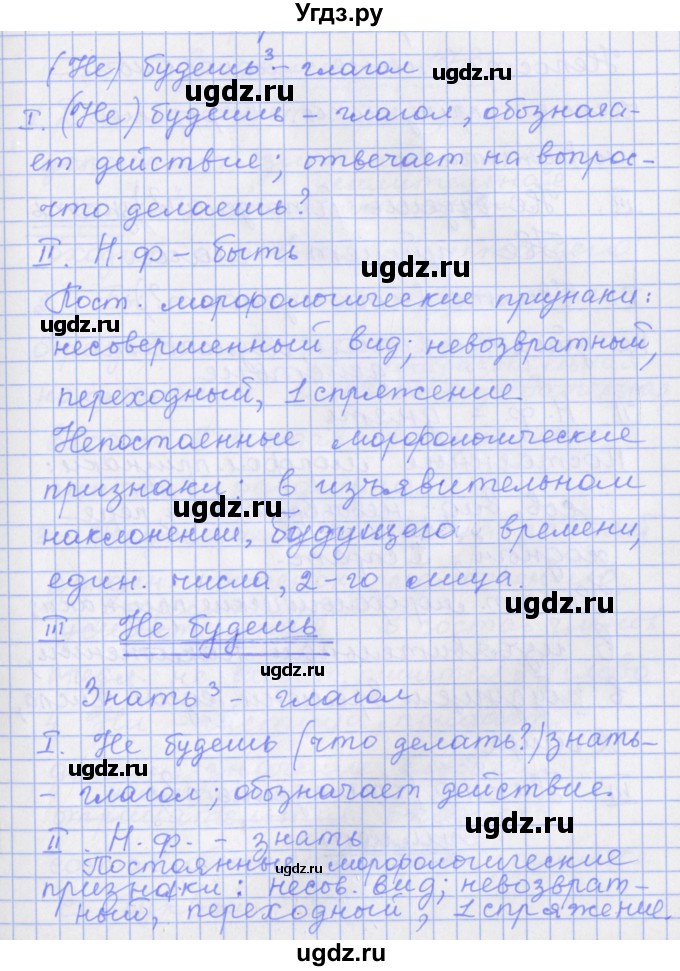 Угдз.ру
(Не) будешь³ - глагол
ugdz.ru ugdz.ru
I. (Не) будешь - глагол, обознача-
ет действие; отвечает на вопрос-
что делаешь?
II. Н.ф - быть
ugdz.ru
Пост. морфологические признаки:
ugdz.ru
несовершенный вид; невозвратный,
переходный, 1 спряжение.
Непостоенные морфологические
признаки: в изъявительном
ugdz.ru
наклонении, будущего времени,
един. числа, 2-го лица.
ugdz.ru
III Не будешь
ugdz.ru
Знать³ - глагол
I. Не будешь (что делать?) знать-
ugdz.ru
- глагол; обозначает действие.
ugdz.ru
II. Н.ф. - знать
Постоянные морфологические
ugdz.ru
признаки: несов. вид; невозврат-
ный, переходный, 1 спряжение.
ugdz.ru